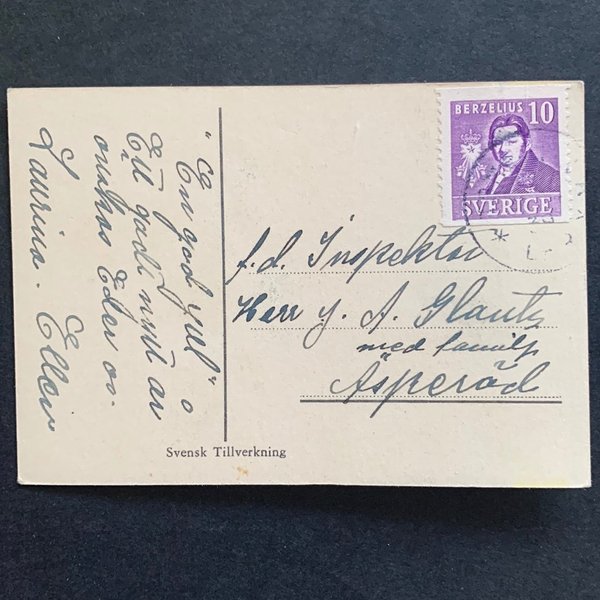 "En god jul" o
Ett godt nytt år
önskas Eder av
Laurina. Ellen
BERZELIUS 10
SVERIGE
f.d. Inspektör
Herr J. A. Glantz
med familj
Äsperöd
Svensk Tillverkning